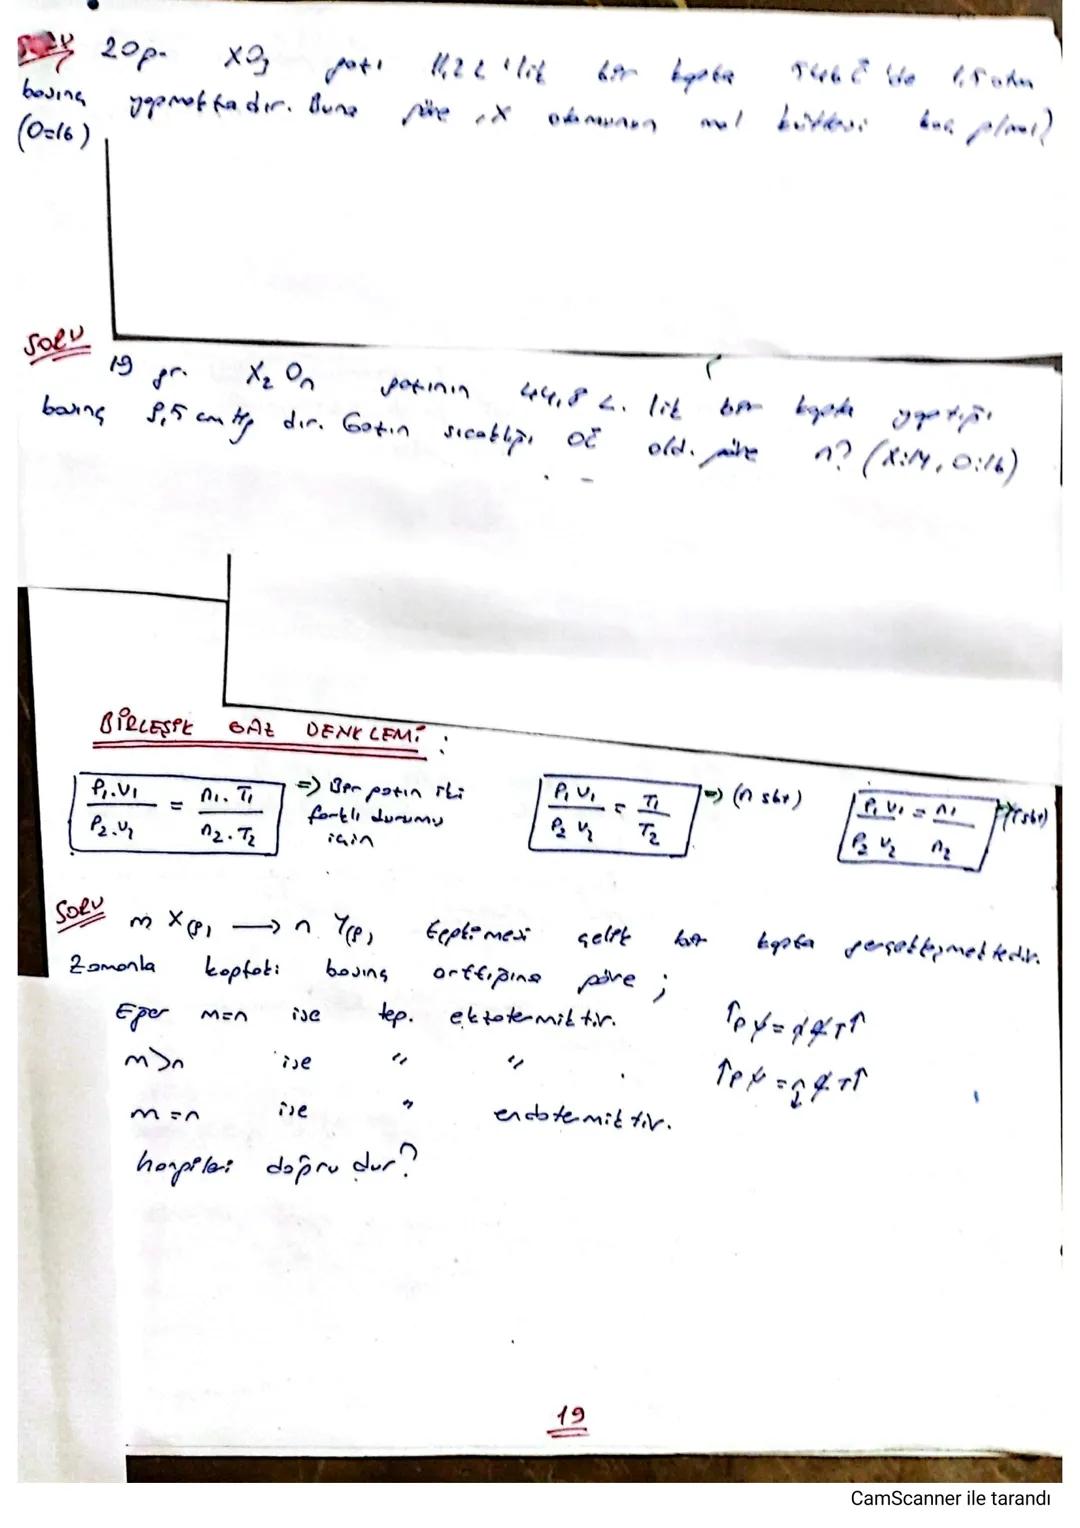 Soru 20 g. XO3 gazı 11,2 L'lik bir kapta 546 C 'de 1,5 atm
basınç yapmaktadır. Buna göre, X atomunun mol kütlesi kaç g/mol?
(O=16)
SORU
19 gr. X2On gazının 44,8 L. lik bir kapta yaptığı
basınç 9,5 cmHg dır. Gazın sıcaklığı 0C old. göre n? (X:14, O:16)
BİRLEŞİK GAZ DENKLEMİ :
P1.V1 / P2.V2 = n1.T1 / n2.T2 => Bir gazın iki farklı durumu için
P1 V1 / P2 V2 = T1 / T2 => (n sbt)
P1 V1 / P2 V2 = n1 / n2 => (T sbt)
SORU m X(g) → n Y(g) tepkimesi çelik bir kapta gerçekleşmektedir.
Zamanla kaptaki basınç arttığına göre ;
Eğer m=n ise tep. ekzotermiktir. ↑P V = n R T↑
m>n ise " " . ↑P V = n↓ R T↑
m=n ise " endotermiktir.
hangileri doğrudur?
19
CamScanner ile tarandı